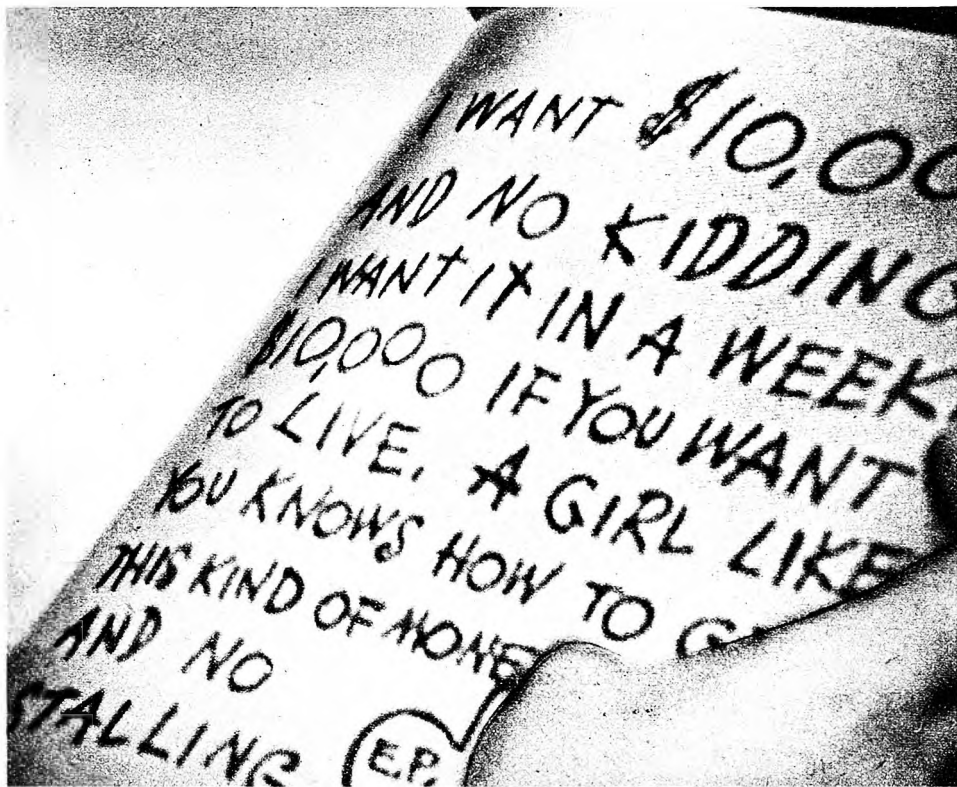 I WANT $10,00
AND NO KIDDING
I WANT IT IN A WEEK.
$10,000 IF YOU WANT
TO LIVE. A GIRL LIKE
YOU KNOWS HOW TO G
THIS KIND OF MONE
AND NO
STALLING
E.P.